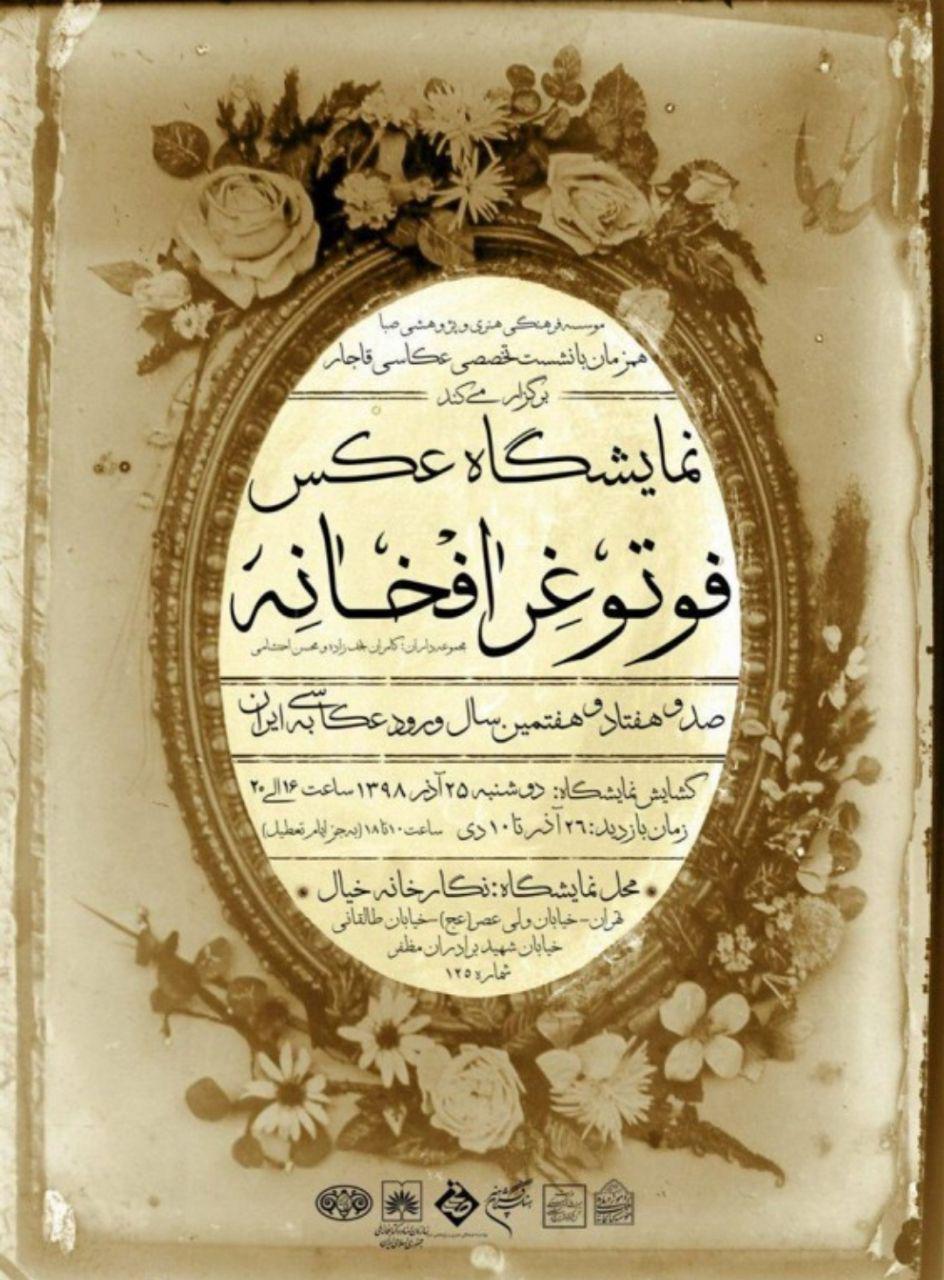 موسسه فرهنگی هنری و پژوهشی صبا
همزمان با نشست تخصصی عکاسی قاجار
برگزار می‌کند
نمایشگاه عکس
فوتوغرافخانه
مجموعه‌داران: کامران نجف‌زاده و محسن احتشامی
صد و هفتاد و هفتمین سال ورود عکاسی به ایران
گشایش نمایشگاه: دوشنبه ۲۵ آذر ۱۳۹۸ ساعت ۱۶ الی ۲۰
زمان بازدید: ۲۶ آذر تا ۱۰ دی ساعت ۱۰ تا ۱۸ (به جز ایام تعطیل)
محل نمایشگاه: نگارخانه خیال
تهران - خیابان ولی عصر (عج) - خیابان طالقانی
خیابان شهید برادران مظفر
شماره ۱۲۵
سازمان اسناد و کتابخانه ملی
جمهوری اسلامی ایران